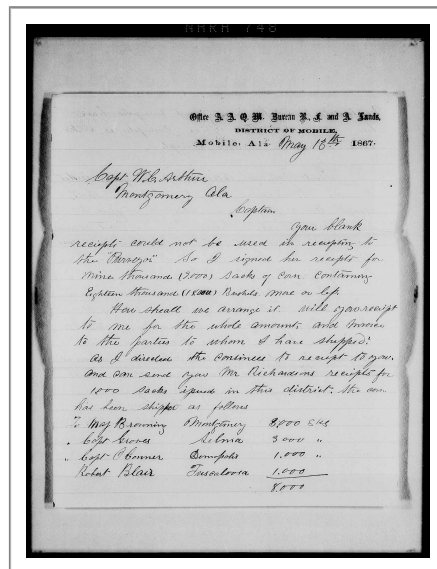 NMRH 748
Office A. A. Q. M. Bureau R., F. and A. Lands,
DISTRICT OF MOBILE,
Mobile, Ala May 13th 1867.
Capt W. C. Arthur
Montgomery Ala
Captain
Your blank
receipts could not be used in receipting to
the "Purveyor" So I signed her receipts for
nine thousand (9.000) sacks of corn containing
Eighteen thousand (18.000) Bushels more or less
How shall we arrange it. will you receipt
to me for the whole amount, and invoice
to the parties to whom I have shipped;
as I directed the consinees to receipt to you.
and can send you Mr Richardsons receipts for
1000 sacks issued in this district. the corn
has been shipped as follows
To Maj Browning Montgomery 3,000 Sks
" Capt Groves Selma 3 000 "
" Capt O'Conner Demopolis 1,000 "
Robert Blair Tuscaloosa 1,000
8,000